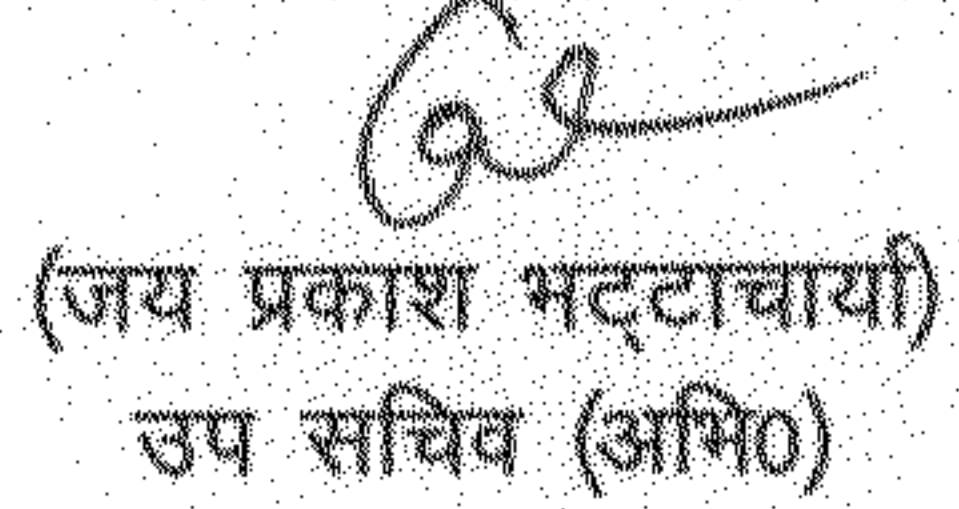 (जय प्रकाश भट्टाचार्या)
उप सचिव (अभि०)